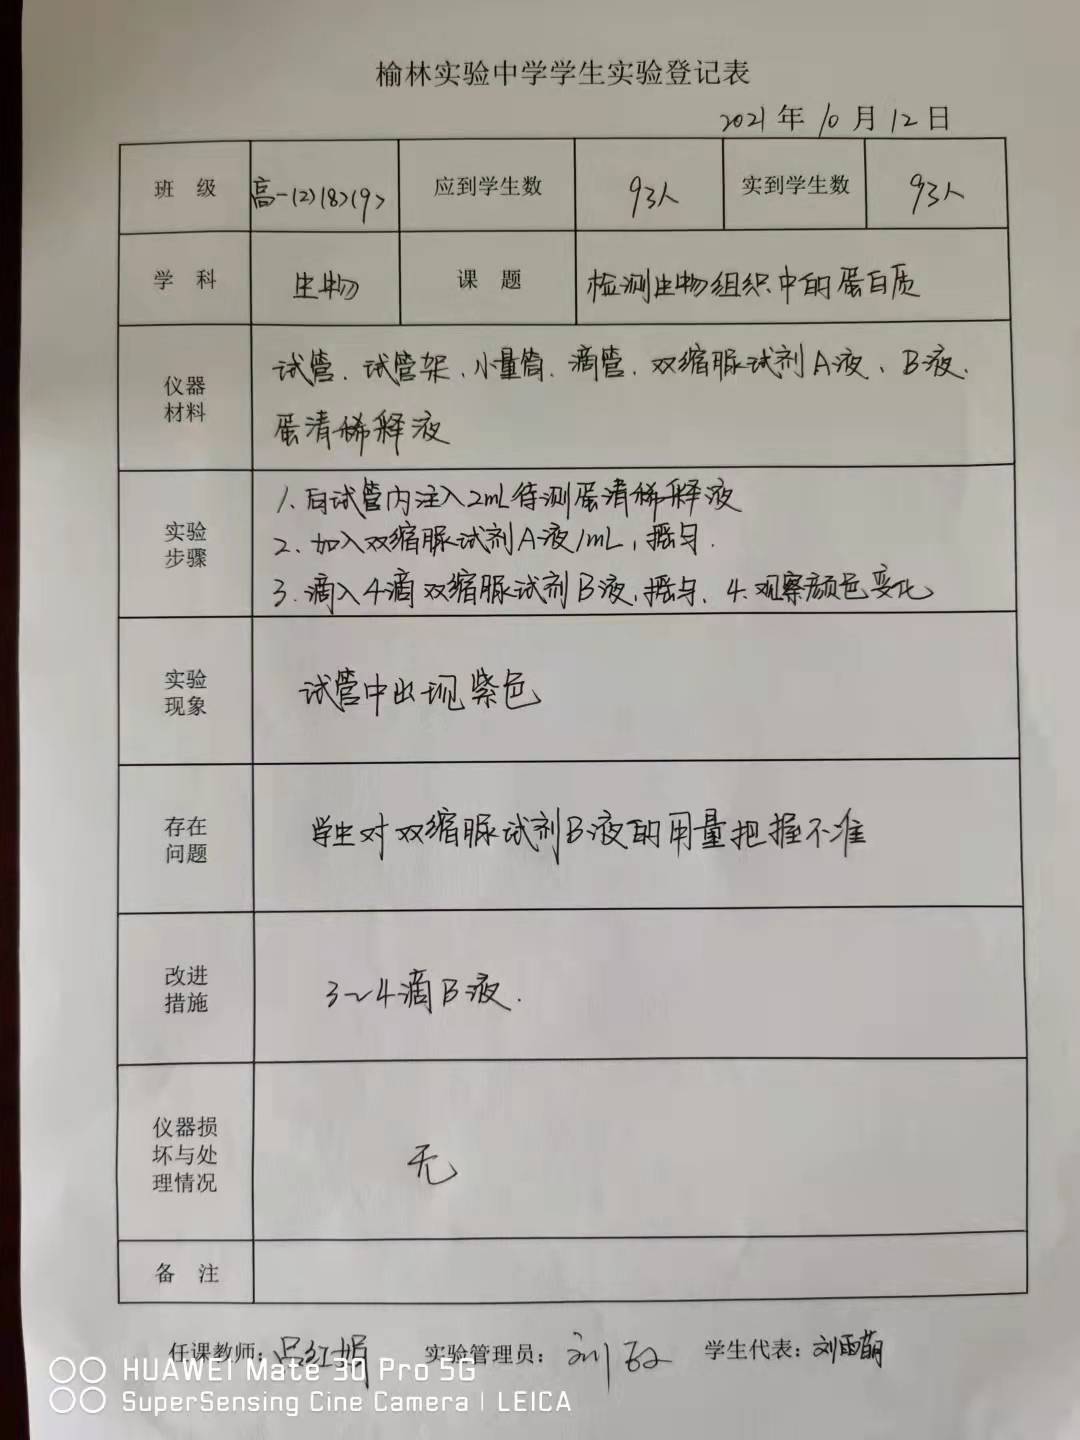 榆林实验中学学生实验登记表
2021年10月12日
班 级 高一(2)(8)(9) 应到学生数 93人 实到学生数 93人
学 科 生物 课 题 检测生物组织中的蛋白质
仪器
材料
试管、试管架、小量筒、滴管、双缩脲试剂A液、B液、
蛋清稀释液
实验
步骤
1、向试管内注入2mL待测蛋清稀释液
2、加入双缩脲试剂A液1mL，摇匀.
3.滴入4滴双缩脲试剂B液,摇匀、4.观察颜色变化
实验
现象
试管中出现紫色
存在
问题
学生对双缩脲试剂B液的用量把握不准
改进
措施
3~4滴B液.
仪器损
坏与处
理情况
无
备 注
任课教师：吕红娟 实验管理员：刘 学生代表：刘雨萌
HUAWEI Mate 30 Pro 5G
SuperSensing Cine Camera | LEICA